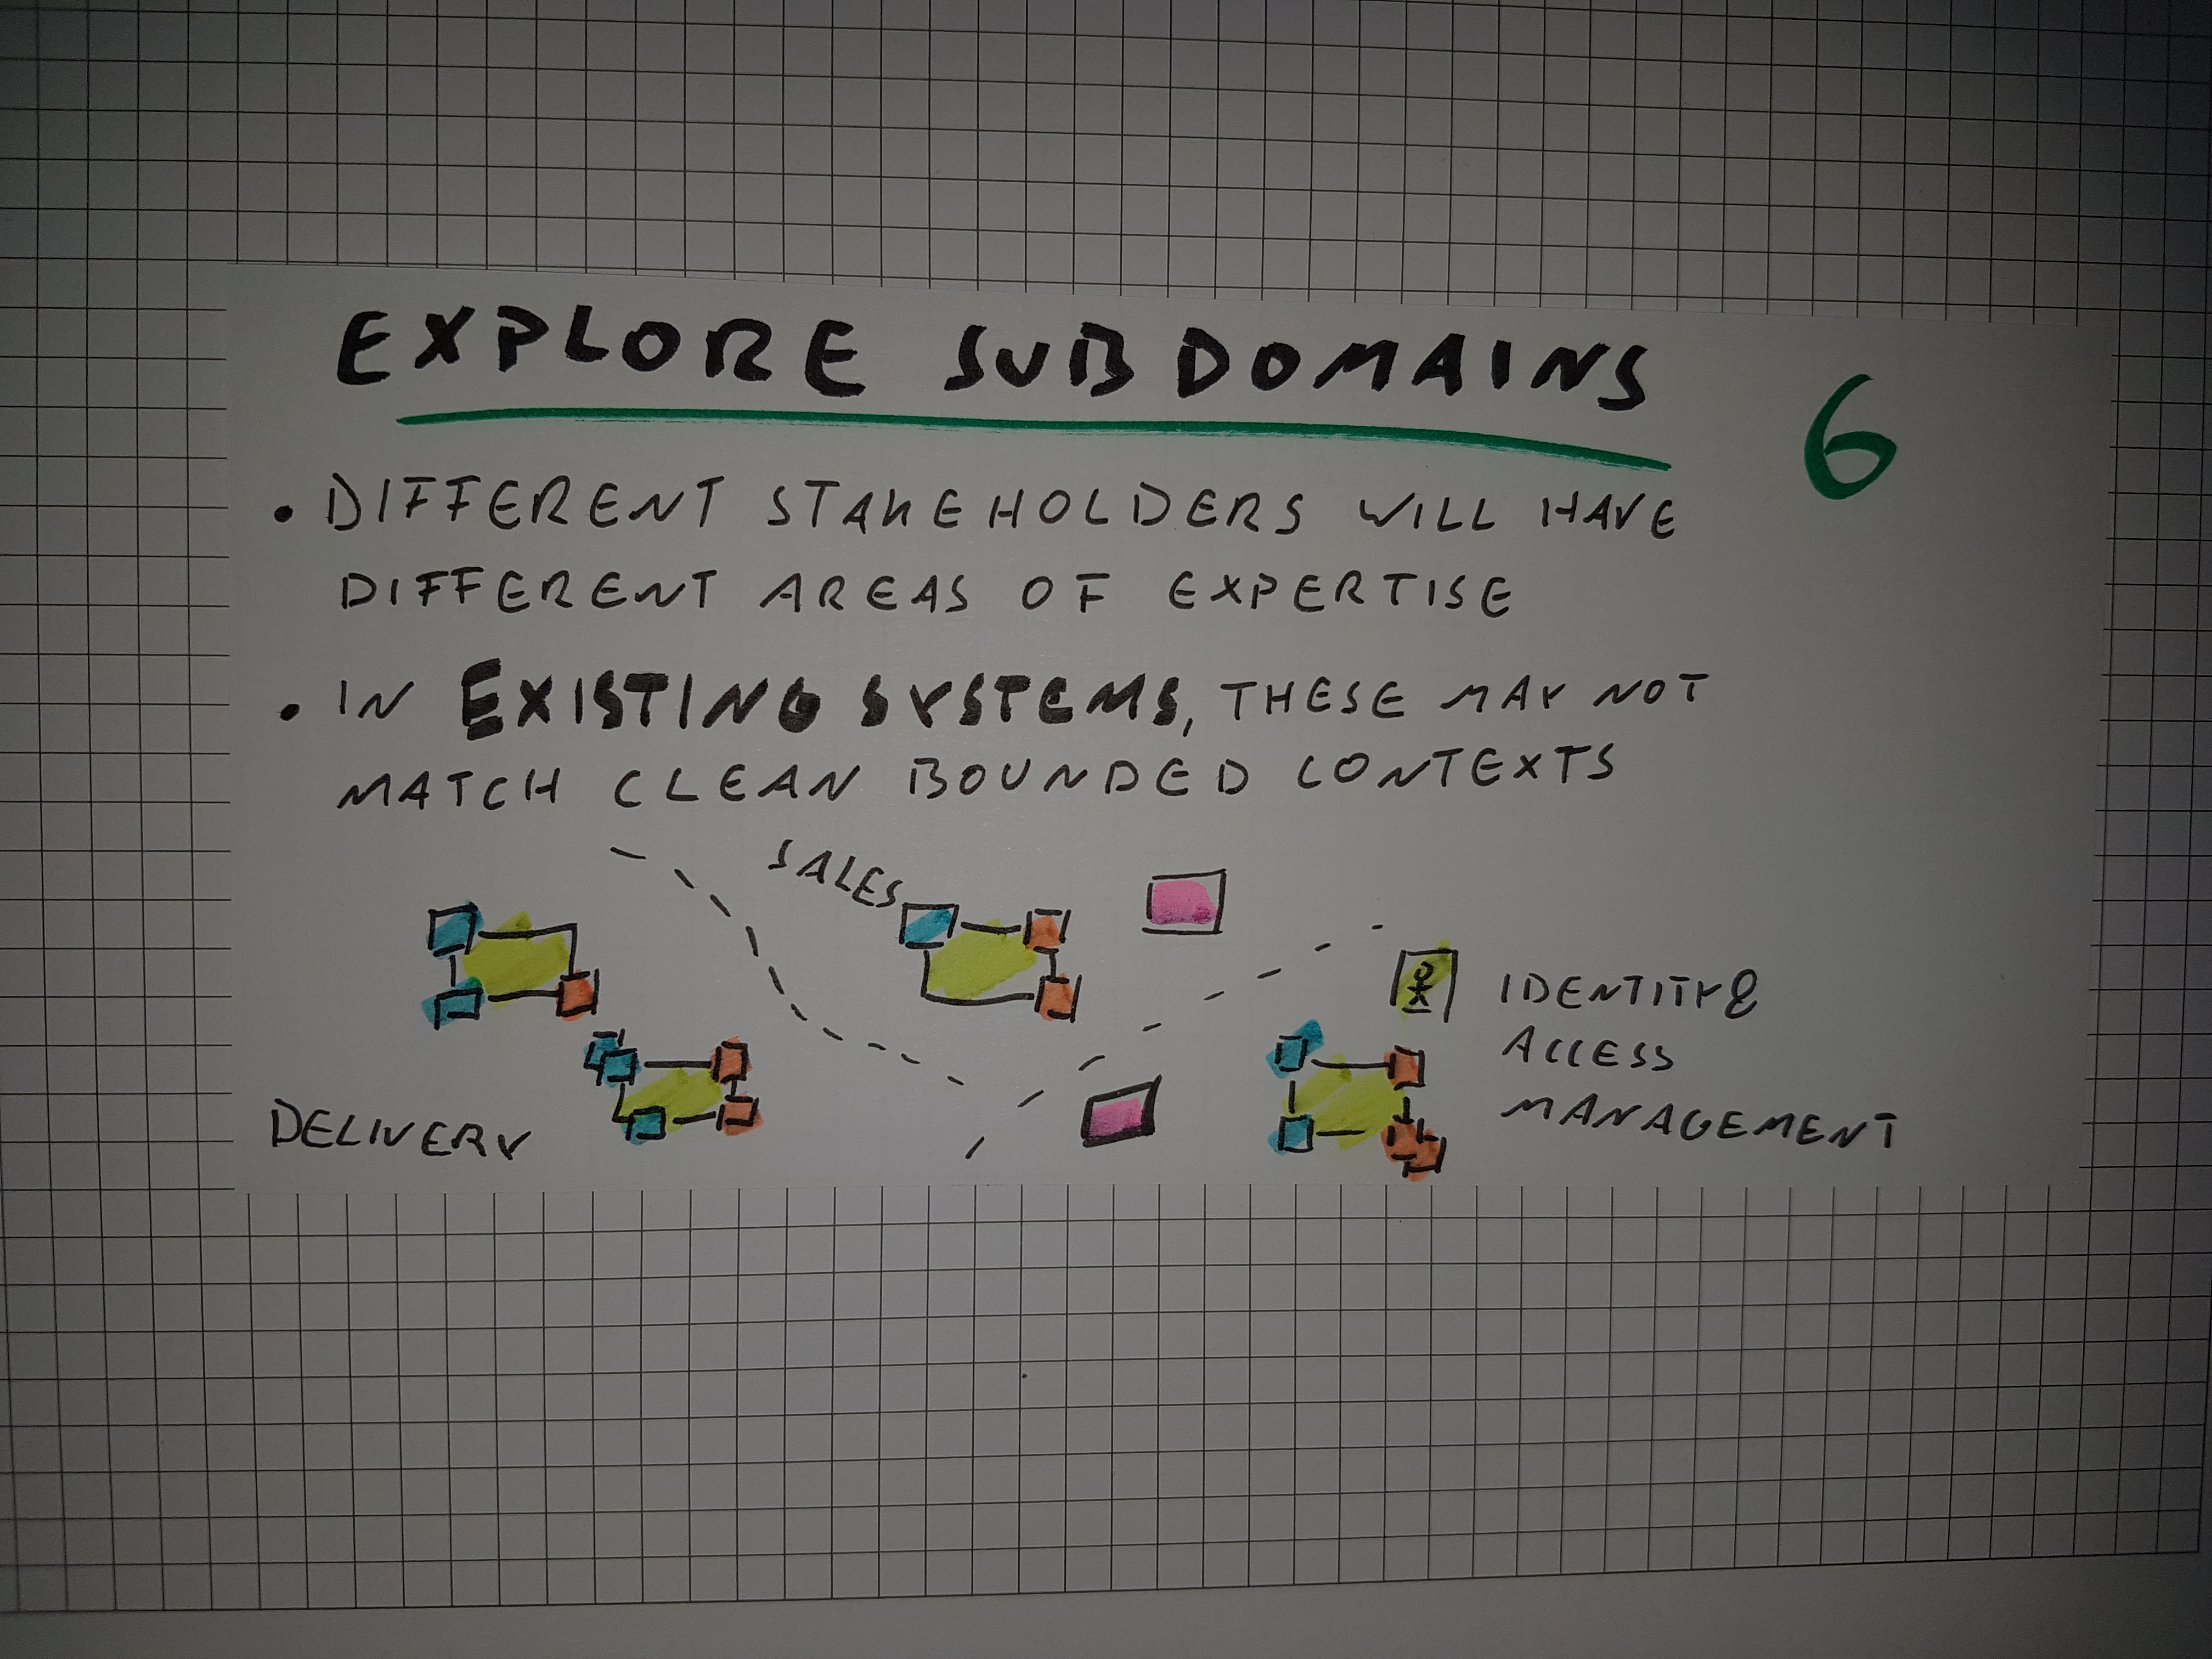 EXPLORE SUBDOMAINS
6
• DIFFERENT STAKEHOLDERS WILL HAVE
DIFFERENT AREAS OF EXPERTISE
• IN EXISTING SYSTEMS, THESE MAY NOT
MATCH CLEAN BOUNDED CONTEXTS
SALES
DELIVERY
IDENTITY &
ACCESS
MANAGEMENT